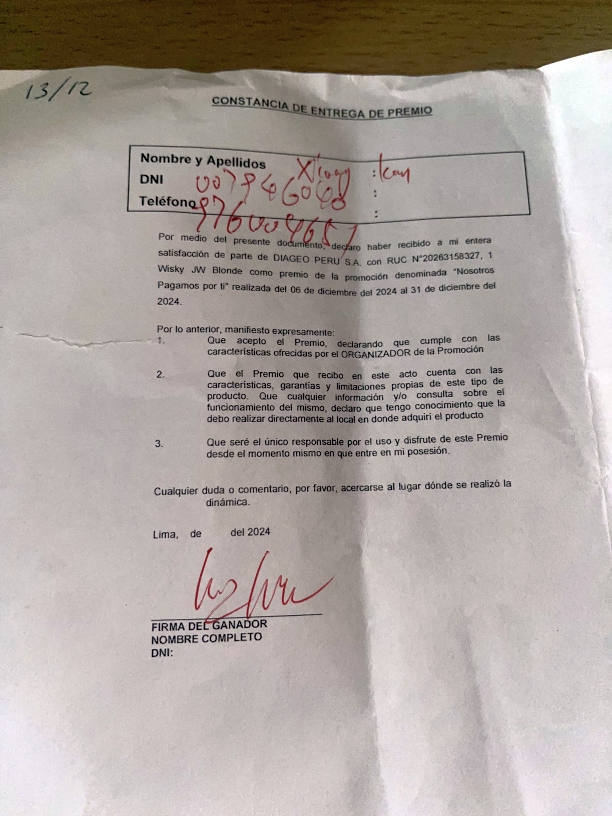 13/12
CONSTANCIA DE ENTREGA DE PREMIO
Nombre y Apellidos :
DNI :
Teléfono :
Por medio del presente documento, declaro haber recibido a mi entera
satisfacción de parte de DIAGEO PERU S.A. con RUC N°20263158327, 1
Wisky JW Blonde como premio de la promoción denominada "Nosotros
Pagamos por ti" realizada del 06 de diciembre del 2024 al 31 de diciembre del
2024.
Por lo anterior, manifiesto expresamente:
1. Que acepto el Premio, declarando que cumple con las
características ofrecidas por el ORGANIZADOR de la Promoción
2. Que el Premio que recibo en este acto cuenta con las
características, garantías y limitaciones propias de este tipo de
producto. Que cualquier información y/o consulta sobre el
funcionamiento del mismo, declaro que tengo conocimiento que la
debo realizar directamente al local en donde adquirí el producto
3. Que seré el único responsable por el uso y disfrute de este Premio
desde el momento mismo en que entre en mi posesión.
Cualquier duda o comentario, por favor, acercarse al lugar dónde se realizó la
dinámica.
Lima, de del 2024
FIRMA DEL GANADOR
NOMBRE COMPLETO
DNI: